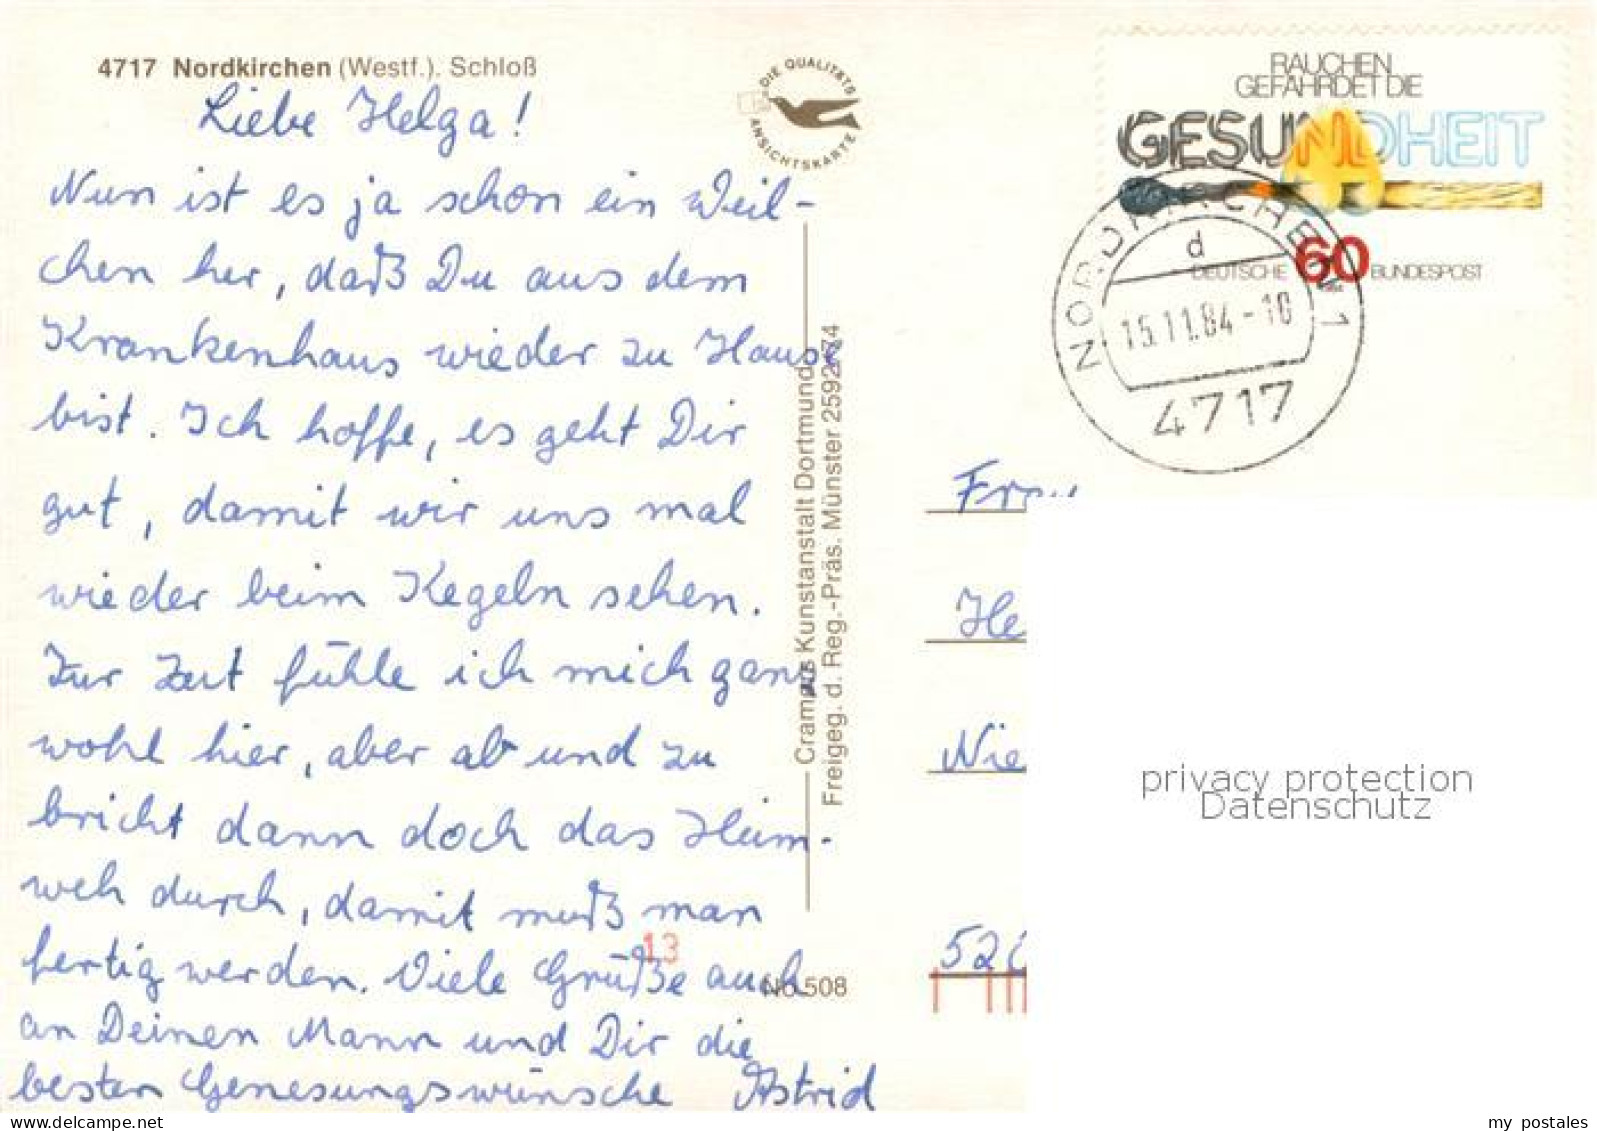 4717 Nordkirchen (Westf.). Schloß
DIE QUALITÄTS
ANSICHTSKARTE
Liebe Helga!
Nun ist es ja schon ein Weil-
chen her, daß Du aus dem
Krankenhaus wieder zu Hause
bist. Ich hoffe, es geht Dir
gut, damit wir uns mal
wieder beim Kegeln sehen.
Zur Zeit fühle ich mich ganz
wohl hier, aber ab und zu
bricht dann doch das Heim-
weh durch, damit muß man
fertig werden. Viele Grüße auch
an Deinen Mann und Dir die
besten Genesungswünsche Astrid
13
No 508
Cramers Kunstanstalt Dortmund
Freigeg. d. Reg.-Präs. Münster 2592/74
RAUCHEN
GEFÄHRDET DIE
GESUNDHEIT
DEUTSCHE 60 BUNDESPOST
NORDKIRCHEN 1
d
15.11.84-10
4717
Frau
He
Nie
52
privacy protection
Datenschutz
www.delcampe.net
my_postales